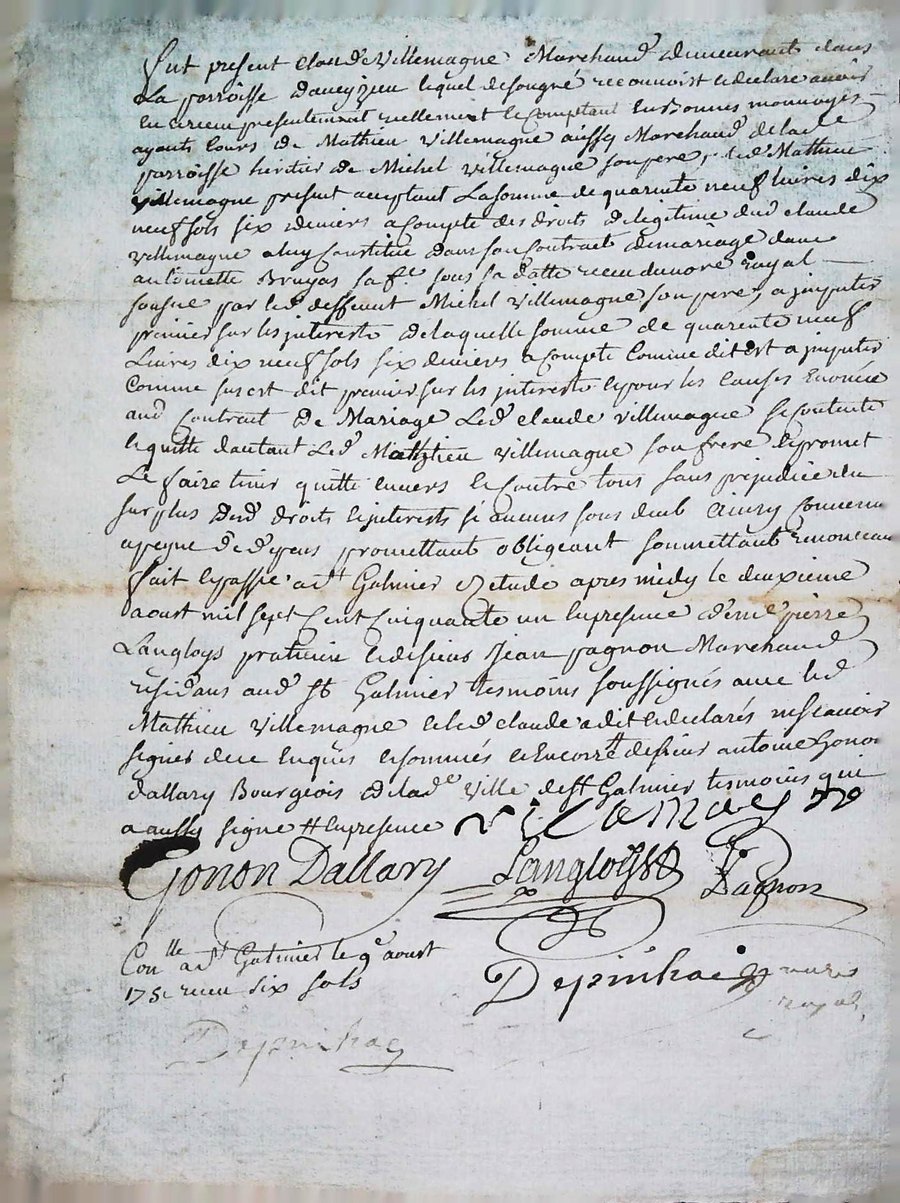 fut present claude villemagne Marchand demeurant dans
La parroisse daveyzieu lequel de son gré reconnoist & declare avoir
Eu & receu presentement reellement & Comptant En bonnes monnoyes
ayants Cours de Mathieu villemagne aussy Marchand de lad
parroisse heritier de Michel villemagne son pere, led Mathieu
villemagne present acceptant La somme de quarente neuf livres dix
neuf sols six deniers a Compte des droits de legitime dud claude
villemagne a luy Constitué dans son Contract de mariage avec
antoinette Bruyas sa fe sous sa datte receu du nore royal
sousné par led deffunt Michel villemagne son pere, a jmputer
premier sur les jnterests de laquelle somme de quarente neuf
Livres dix neuf sols six deniers a Compte Comme dit est a jmputer
Comme sus est dit premier sur les jnterests & pour les Causes Enoncée
aud Contract de Mariage Led claude villemagne se Contente
& quitte dautant Led Mathieu villemagne son frere & promet
Le faire tenir quitte Envers & Contre tous sans prejudice du
surplus dud droits & jnterests si aucuns sont deub Ainsy Convenu
a peyne de depens promettant obligeant soumettant renonceant
fait & passé a st Galmier Etude apres midy le deuxieme
aoust mil sept Cent Cinquante un En presence de me pierre
Langloys praticien & de sieur Jean pagnon Marchand
residans aud st Galmier tesmoins soussignés avec led
Mathieu villemagne & led claude a dit & declarés ne scavoir
signer de ce Enquis & sommés & Encorre de sieur antoine Gonon
dallary Bourgeois de lade ville de st Galmier tesmoins qui
a aussy signe # En presence vilamagne
Gonon Dallary Langloys Pagnon
Conlle a st Galmier le 9e aoust
1751 receu six sols
Depinhac nore
royal
Depinhac